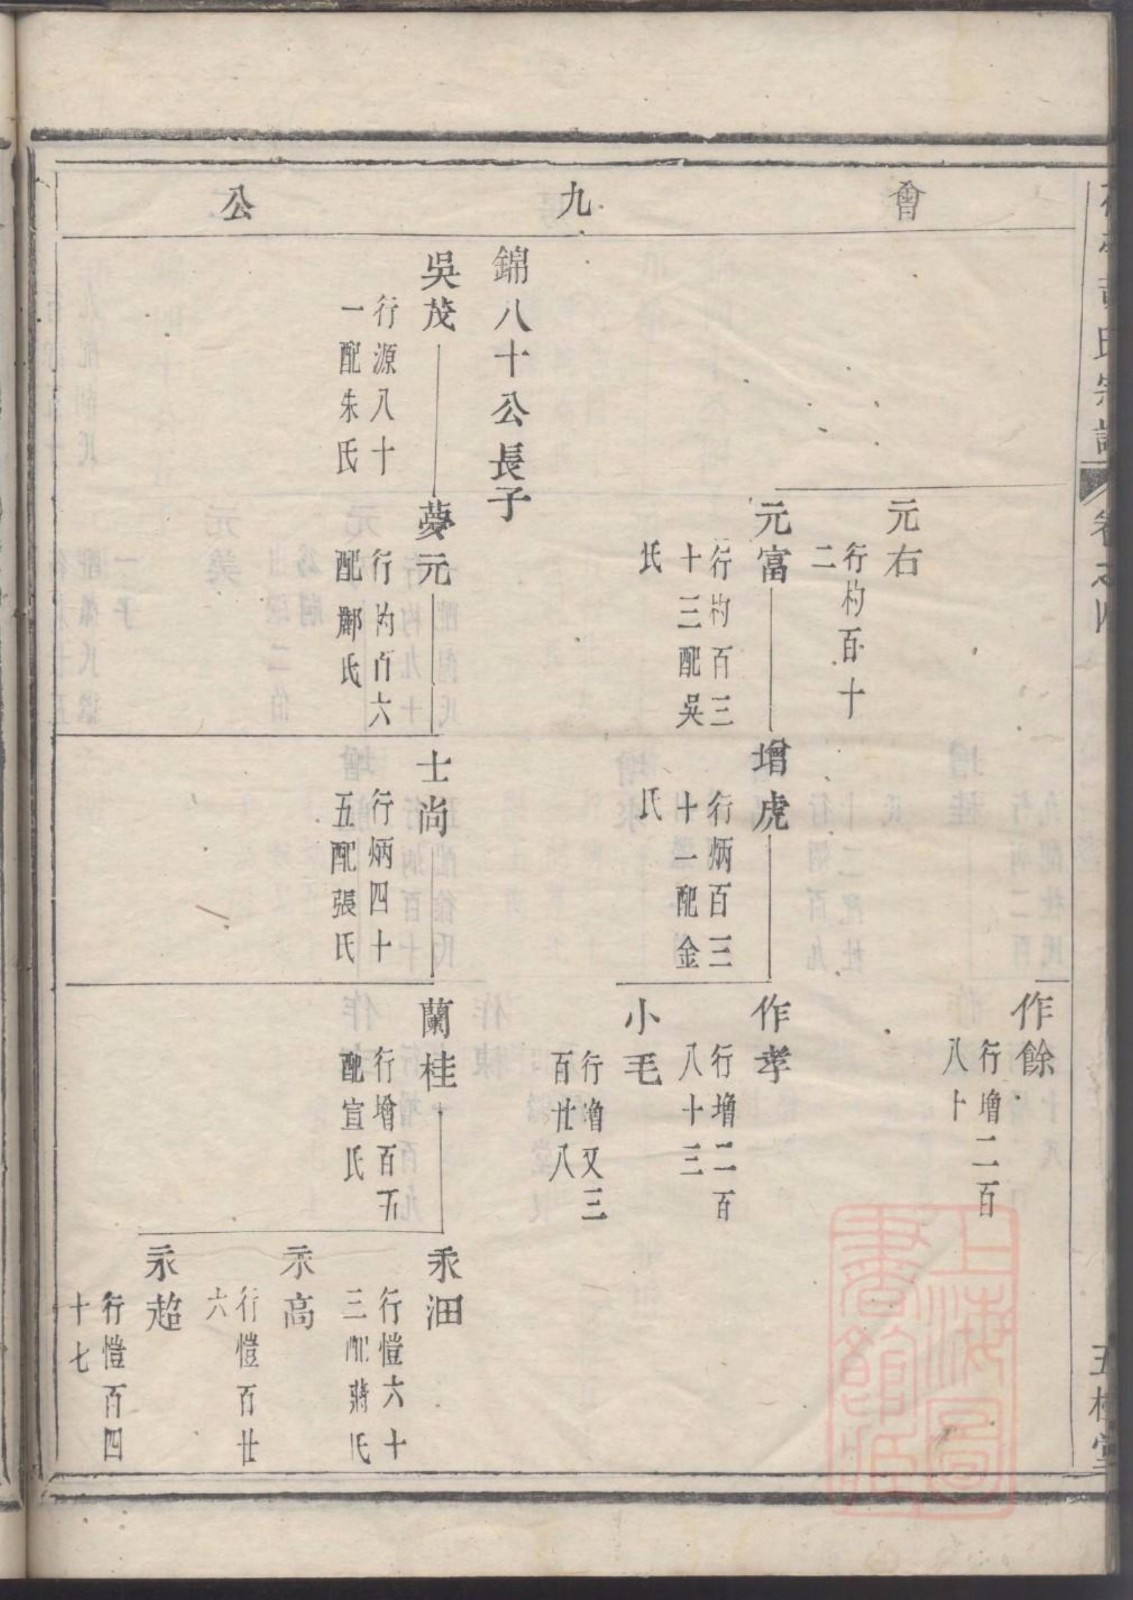 會九公
氏宗譜
卷之四
五桂堂
元右
行杓百十
二
元富
行杓百三
十三配吳
氏
增虎
行炳百三
十一配金
氏
作餘
行增二百
八十
作孝
行增二百
八十三
小毛
行增又三
百廿八
錦八十公長子
吳茂
行源八十
一配朱氏
夢元
行杓百六
配鄭氏
士尚
行炳四十
五配張氏
蘭桂
行增百五
配宣氏
永沺
行愷六十
三配蔣氏
永高
行愷百廿
六
永超
行愷百四
十七
上海圖書館藏